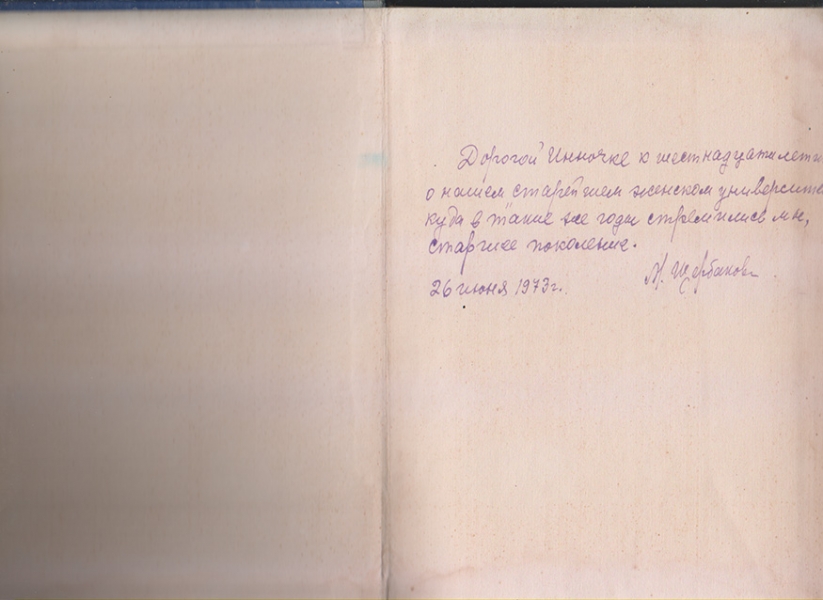 Дорогой Инночке к шестнадцатилети
о нашем старейшем женском университе
куда в такие же годы стремились мы,
старшее поколение.
М. Щербаков
26 июня 1973 г.